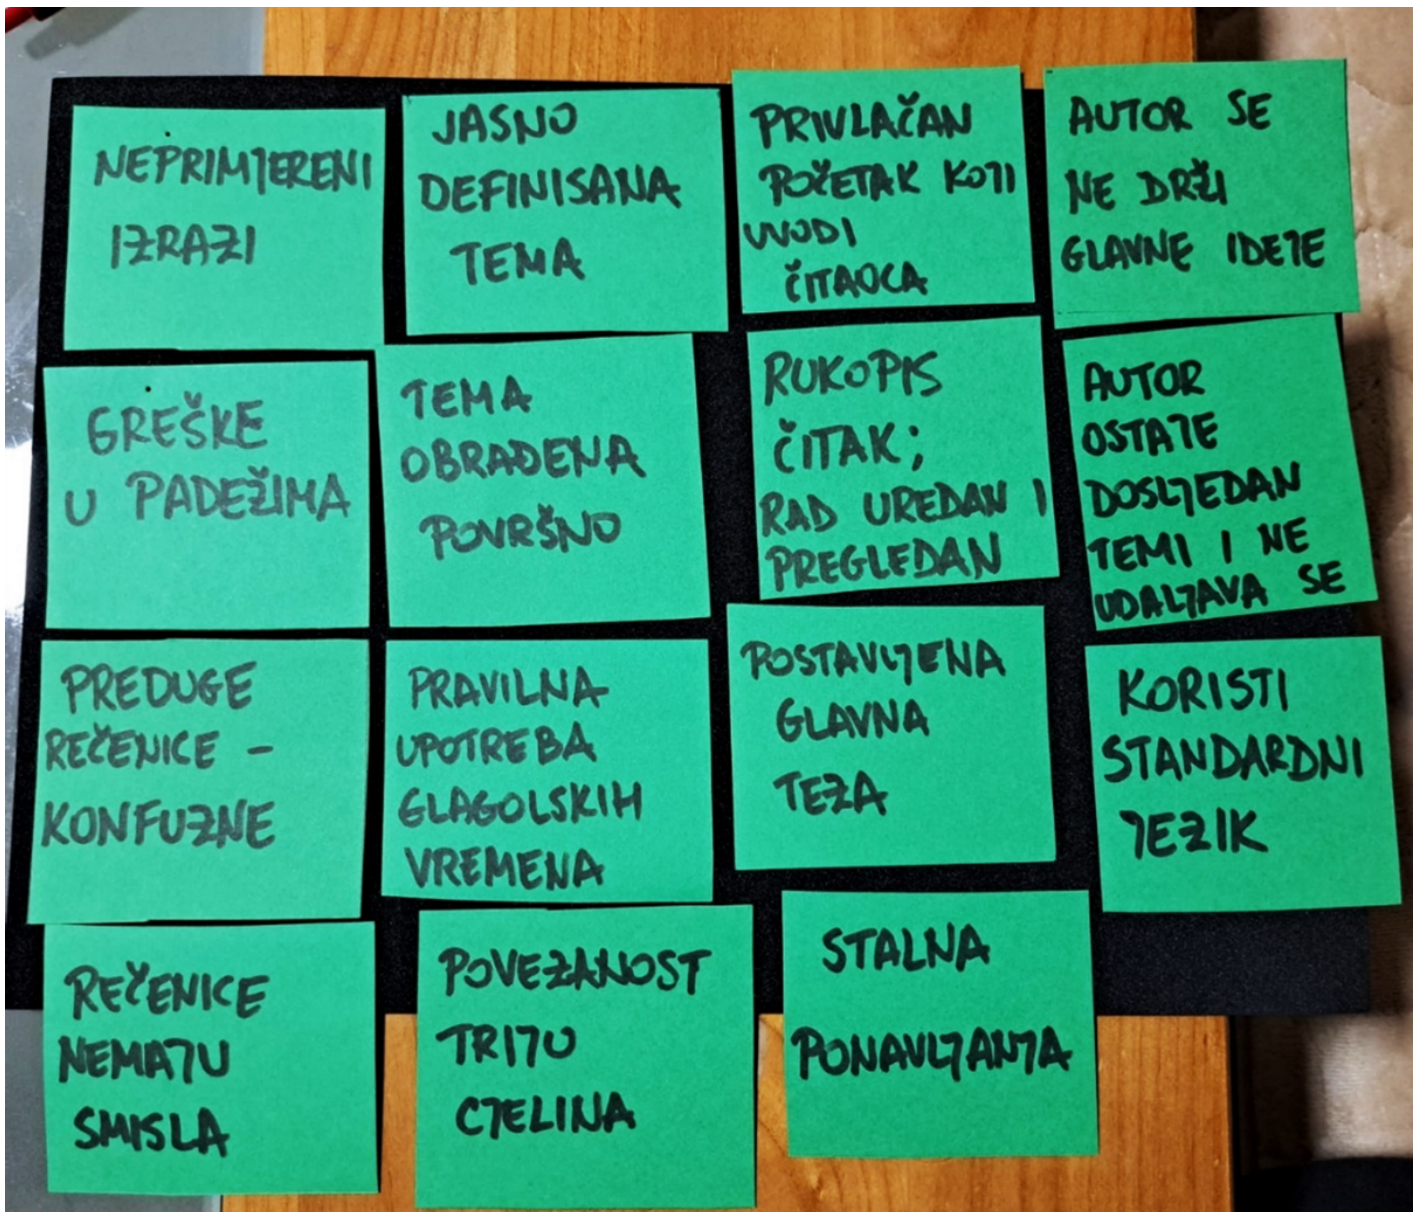 NEPRIMJERENI
IZRAZI
JASNO
DEFINISANA
TEMA
PRIVLAČAN
POČETAK KOJI
UVODI
ČITAOCA
AUTOR SE
NE DRŽI
GLAVNE IDEJE
GREŠKE
U PADEŽIMA
TEMA
OBRAĐENA
POVRŠNO
RUKOPIS
ČITAK;
RAD UREDAN I
PREGLEDAN
AUTOR
OSTAJE
DOSLJEDAN
TEMI I NE
UDALJAVA SE
PREDUGE
REČENICE -
KONFUZNE
PRAVILNA
UPOTREBA
GLAGOLSKIH
VREMENA
POSTAVLJENA
GLAVNA
TEZA
KORISTI
STANDARDNI
JEZIK
REČENICE
NEMAJU
SMISLA
POVEZANOST
TRIJU
CJELINA
STALNA
PONAVLJANJA